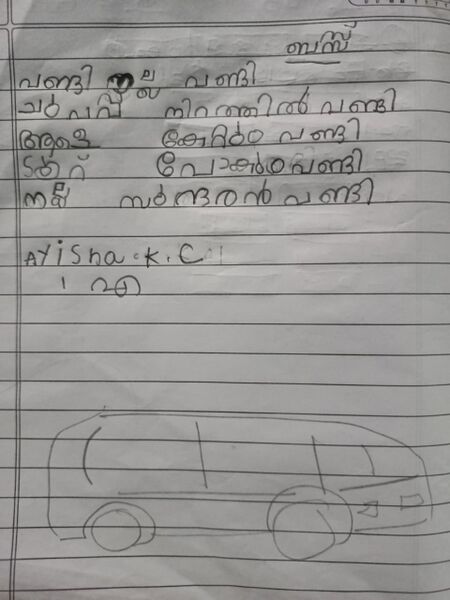 ബസ്സ്
വണ്ടി നല്ല വണ്ടി
ചുവപ്പ് നിറത്തിൽ വണ്ടി
ആളെ കേറ്റും വണ്ടി
പോകും വണ്ടി
നല്ല സുന്ദരൻ വണ്ടി
Ayisha.K.C
1